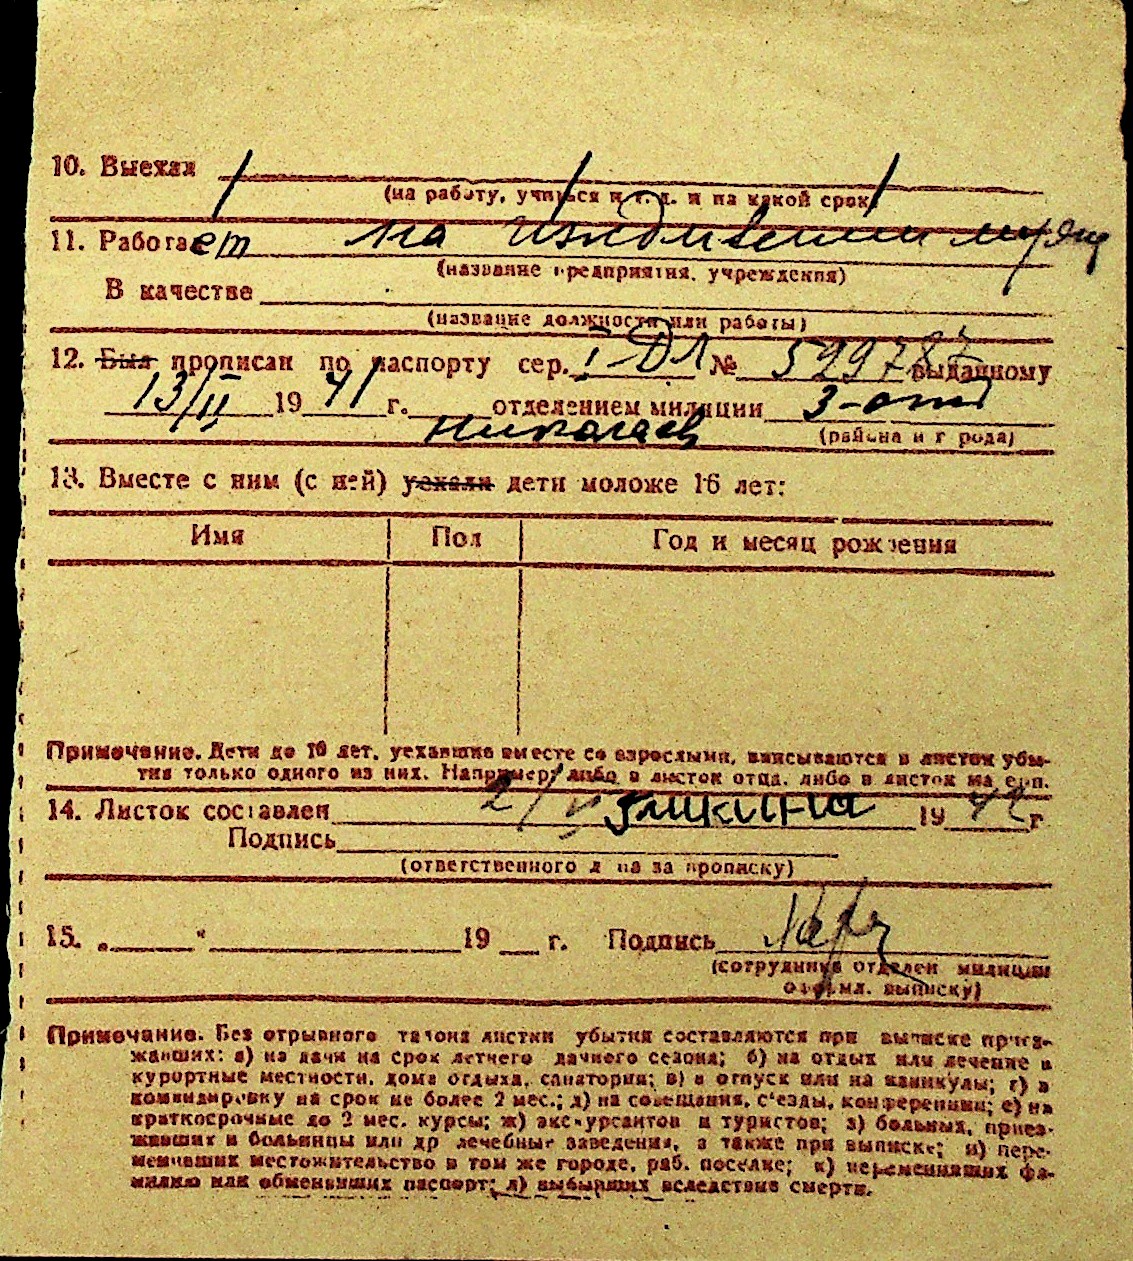 10. Выехал
(на работу, учиться и т. д. и на какой срок)
11. Работает на иждивении мужа
(название предприятия, учреждения)
В качестве
(название должности или работы)
12. Был прописан по паспорту сер. I-ДЛ № 599787 выданному
13/II 1941 г. отделением милиции 3-отд
Николаев (района и города)
13. Вместе с ним (с ней) уехали дети моложе 16 лет:
Имя Пол Год и месяц рождения
Примечание. Дети до 16 лет, уехавшие вместе со взрослыми, вписываются в листок убы-
тия только одного из них. Например, либо в листок отца, либо в листок матери.
14. Листок составлен 21/V 1942 г
Подпись
(ответственного лица за прописку)
15. „ “ 19 г. Подпись
(сотрудника отделен милиции
оформл. выписку)
Примечание. Без отрывного талона листки убытия составляются при выписке приез-
жавших: а) на дачи на срок летнего дачного сезона; б) на отдых или лечение в
курортные местности, дома отдыха, санатории; в) в отпуск или на каникулы; г) в
командировку на срок не более 2 мес.; д) на совещания, съезды, конференции; е) на
краткосрочные до 2 мес. курсы; ж) экскурсантов и туристов; з) больных, приез-
жавших в больницы или др лечебные заведения, а также при выписке; и) пере-
менивших местожительство в том же городе, раб. поселке; к) переменивших фа-
милию или обменявших паспорт; л) выбывших вследствие смерти.